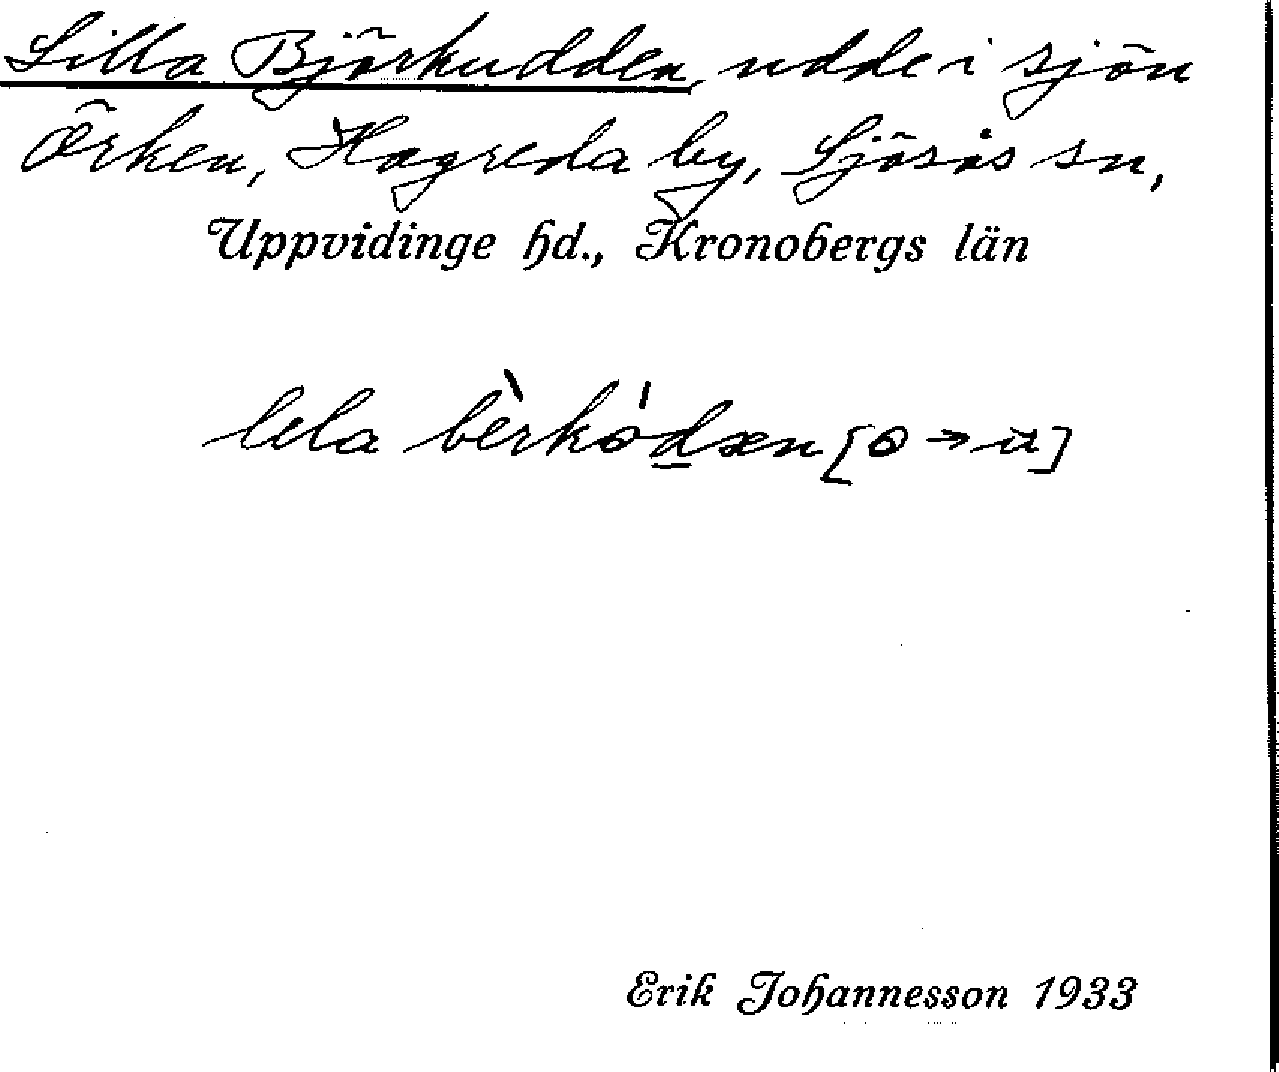 Lilla Björkudden, udde i sjön
Örken, Hagreda by, Sjösås sn,
Uppvidinge hd., Kronobergs län
lela bèrkòdæn [o → u]
Erik Johannesson 1933